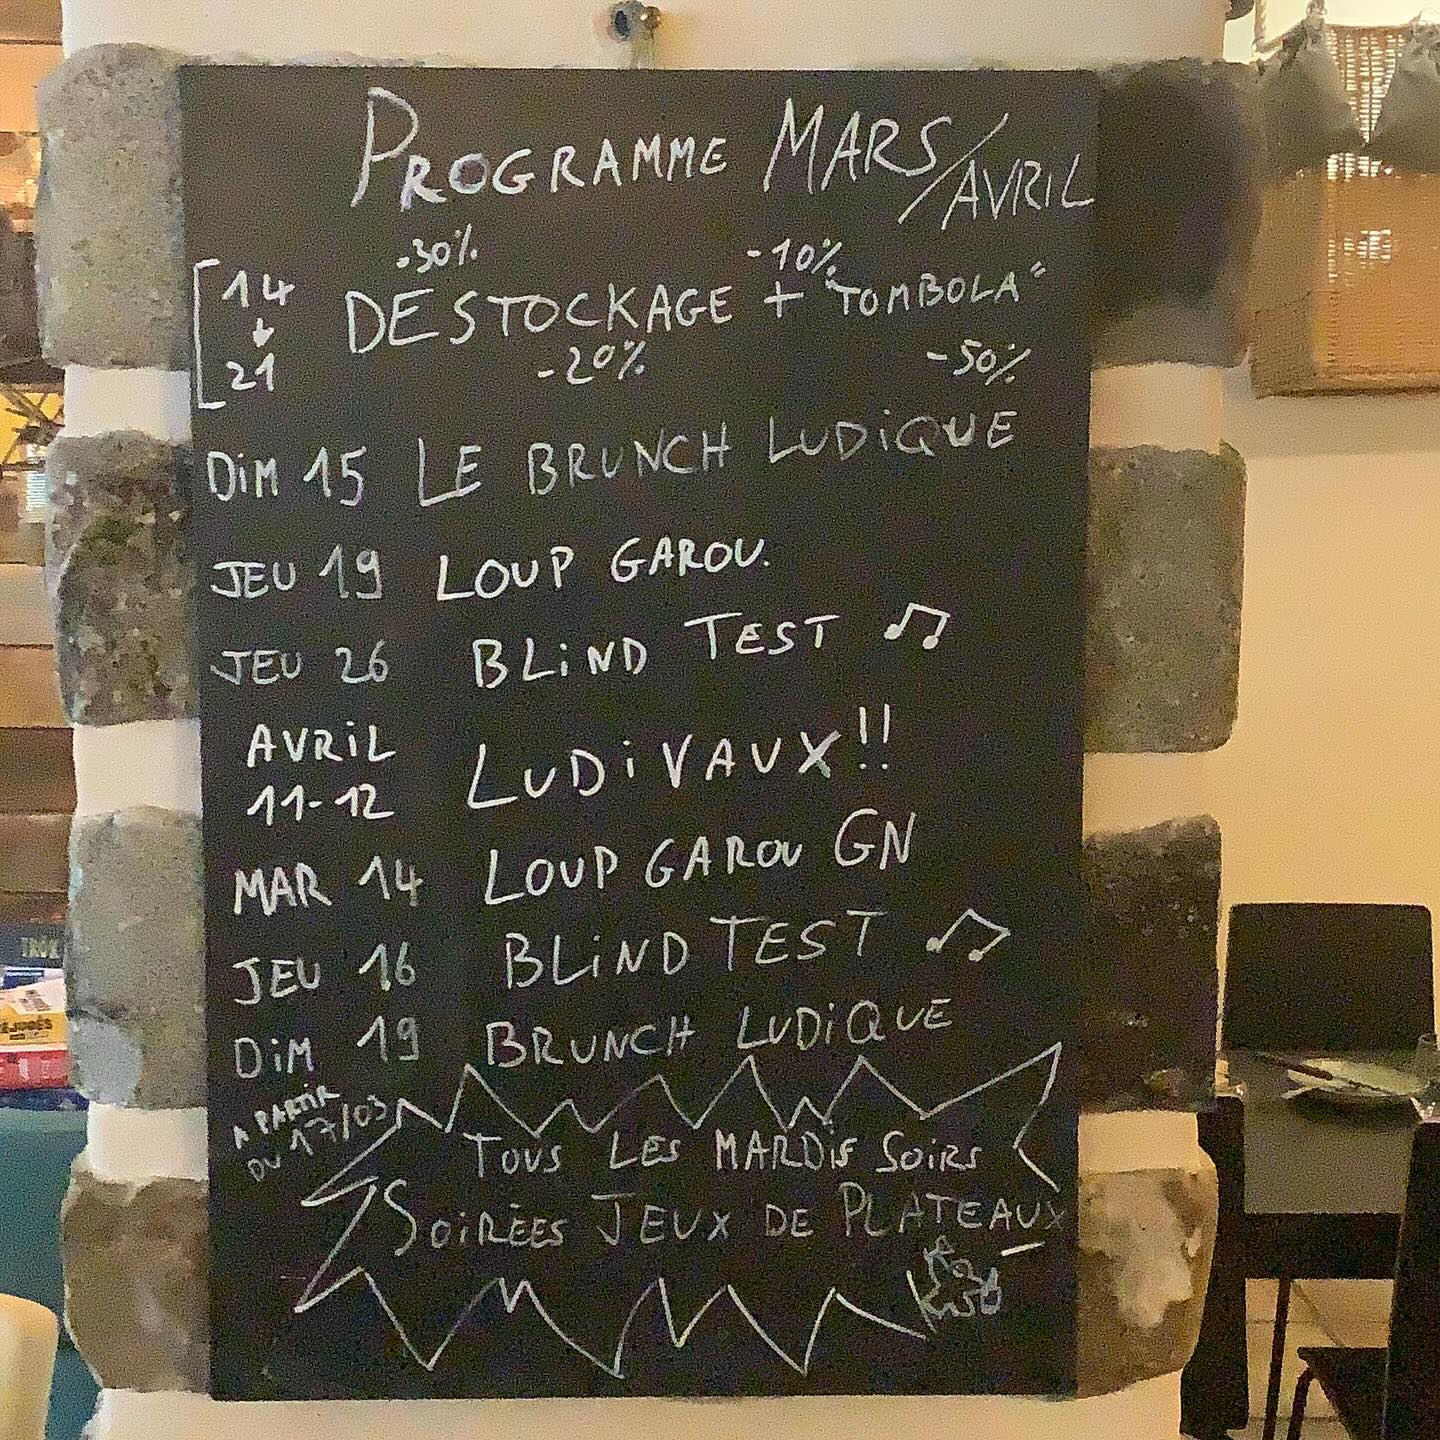 PROGRAMME MARS/AVRIL
-30% -10%
14 21 DESTOCKAGE + "TOMBOLA"
-20% -50%
DiM 15 LE BRUNCH LUDiQUE
JEU 19 LOUP GAROU.
JEU 26 BLiND TEST
AVRiL 11-12 LUDiVAUX!!
MAR 14 LOUP GAROU GN
JEU 16 BLiND TEST
DiM 19 BRUNCH LUDiQUE
A PARTiR DU 17/03
TOUS LES MARDiS SOiRS
SOiRÈES JEUX DE PLATEAUX